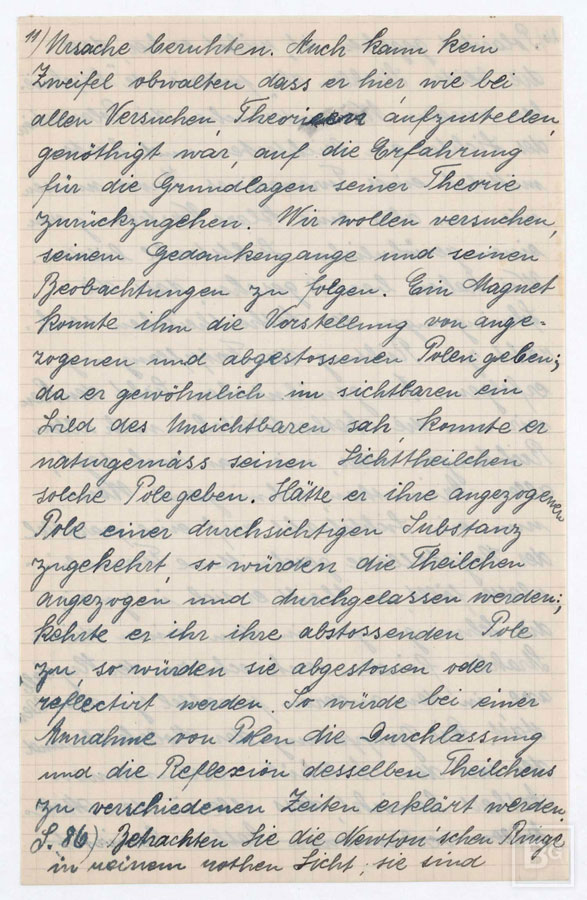 11) Ursache beruhten. Auch kann kein
Zweifel obwalten dass er hier, wie bei
allen Versuchen, Theorieen aufzustellen,
genöthigt war, auf die Erfahrung
für die Grundlagen seiner Theorie
zurückzugehen. Wir wollen versuchen,
seinem Gedankengange und seinen
Beobachtungen zu folgen. Ein Magnet
konnte ihm die Vorstellung von ange-
zogenen und abgestossenen Polen geben;
da er gewöhnlich im sichtbaren ein
Bild des Unsichtbaren sah, konnte er
naturgemäss seinen Lichttheilchen
solche Pole geben. Hätte er ihre angezogenen
Pole einer durchsichtigen Substanz
zugekehrt, so würden die Theilchen
angezogen und durchgelassen werden;
kehrte er ihr ihre abstossenden Pole
zu, so würden sie abgestossen oder
reflectirt werden. So würde bei einer
Annahme von Polen die Durchlassung
und die Reflexion desselben Theilchens
zu verschiedenen Zeiten erklärt werden.
S. 86) Betrachten Sie die Newton'schen Ringe
in reinem rothen Licht, sie sind
BG